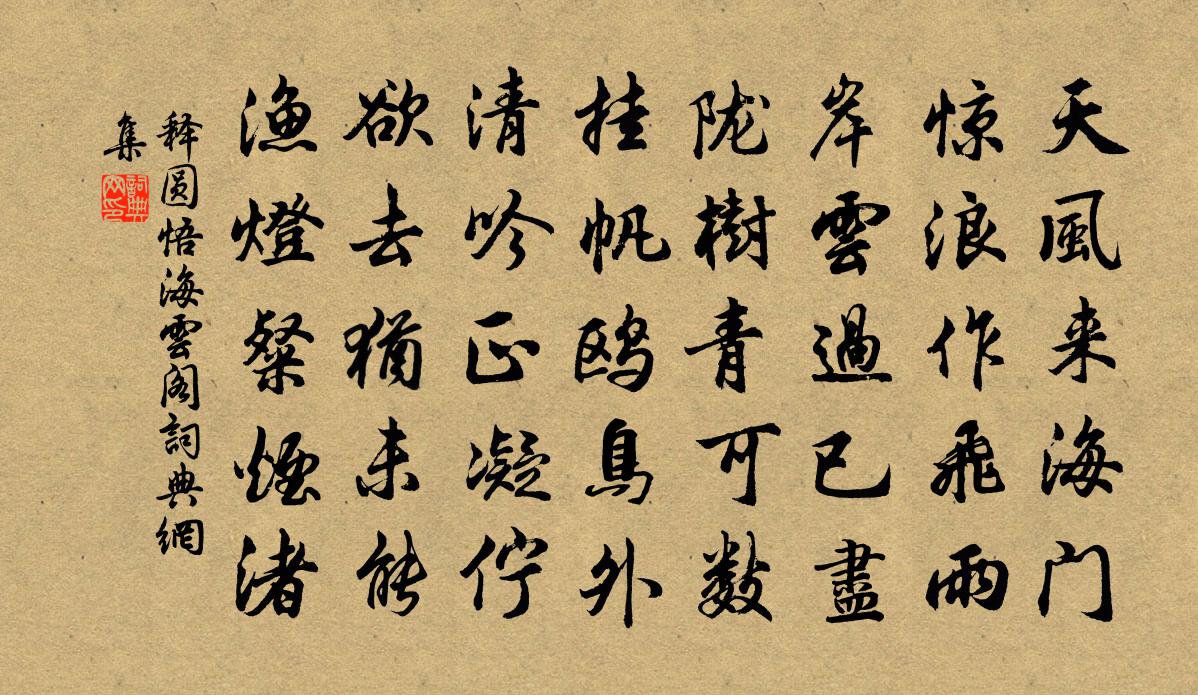 天風来海门
惊浪作飛雨
岸雲過已盡
陇樹青可数
挂帆鸥鳥外
清吟正凝伫
欲去猶未能
渔燈粲煙渚
释圆悟海雲阁詞典網
集
詞典
网印